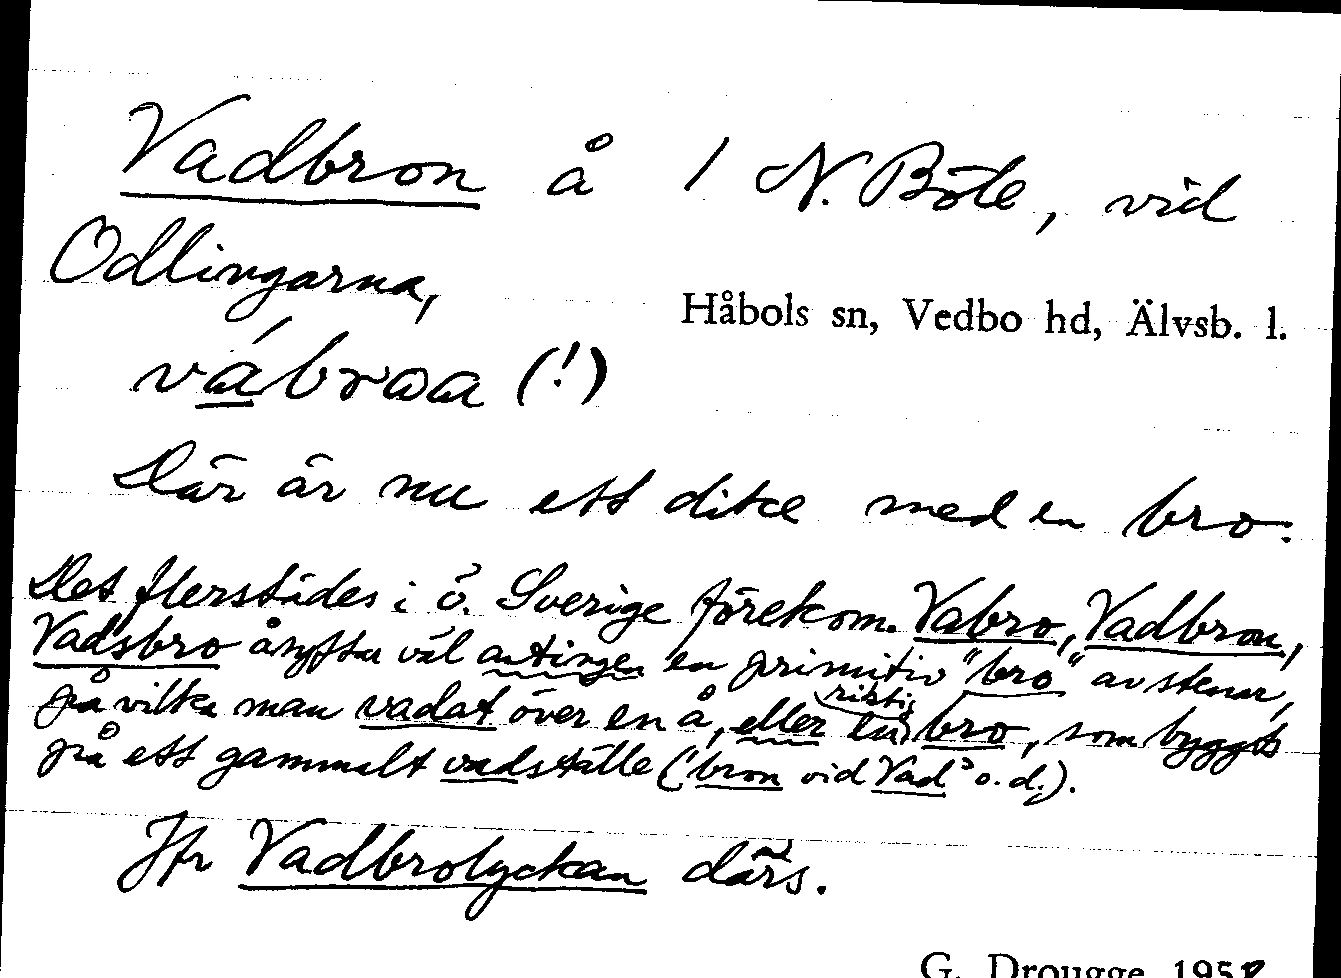 Vadbron å 1 N. Böle, vid
Odlingarna,
Håbols sn, Vedbo hd, Älvsb. l.
vábroa (!)
Där är nu ett dike med en bro.
Det flerstädes i ö. Sverige förekom. Vabro, Vadbron,
Vadsbro åsyftar väl antingen en primitiv "bro" av stenar,
på vilka man vadat över en å, eller en riktig bro, som byggts
på ett gammalt vadställe ('bron vid Vad' o.d.).
Jfr Vadbrolyckan därs.
G. Drougge 195